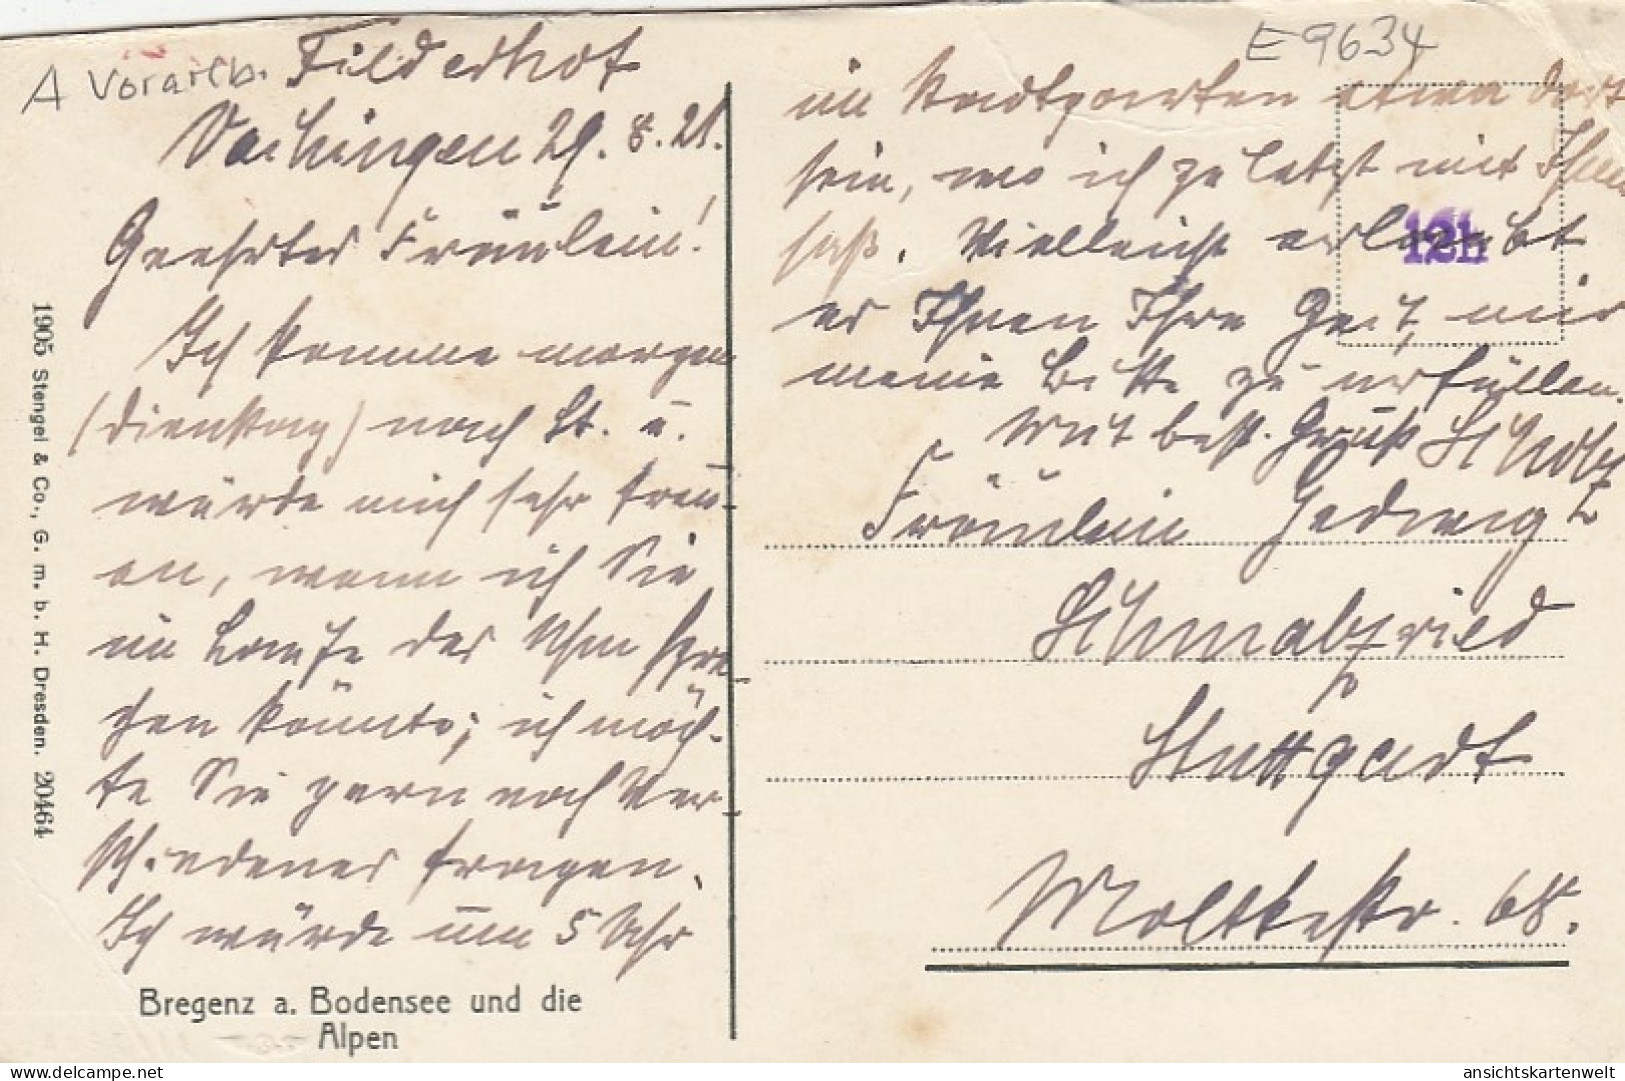 E 9634
A Vorarlb.
Filderhof
Vaihingen 29. 8. 21.
Geehrtes Fräulein!
Ich komme morgen
(Dienstag) nach St. u.
würde mich sehr freu-
en, wenn ich Sie
im Laufe des Abm spre
chen könnte; ich möch-
te Sie gern noch Ver
schiedenes fragen.
Ich würde um 5 Uhr
im Stadtgarten etwa dort
sein, wo ich zuletzt mit Ihnen
saß. Vielleicht erlaubt
es Ihnen Ihre Zeit, mir
meine Bitte zu erfüllen.
Mit best. Gruß
12h
Fräulein Hedwig
Schmalzried
Stuttgart
Moltkestr. 68.
Bregenz a. Bodensee und die
Alpen
1905 Stengel & Co., G. m. b. H. Dresden. 20464
ansichtskartenwelt